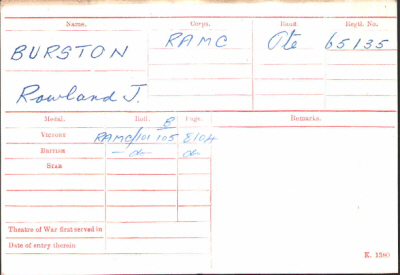 Name. Corps. Rank. Regtl. No.
BURSTON RAMC Pte 65135
Rowland J.
Medal. Roll. Page. Remarks.
B
VICTORY RAMC/101 105 8104
BRITISH —do— do
STAR
Theatre of War first served in
Date of entry therein
K. 1380